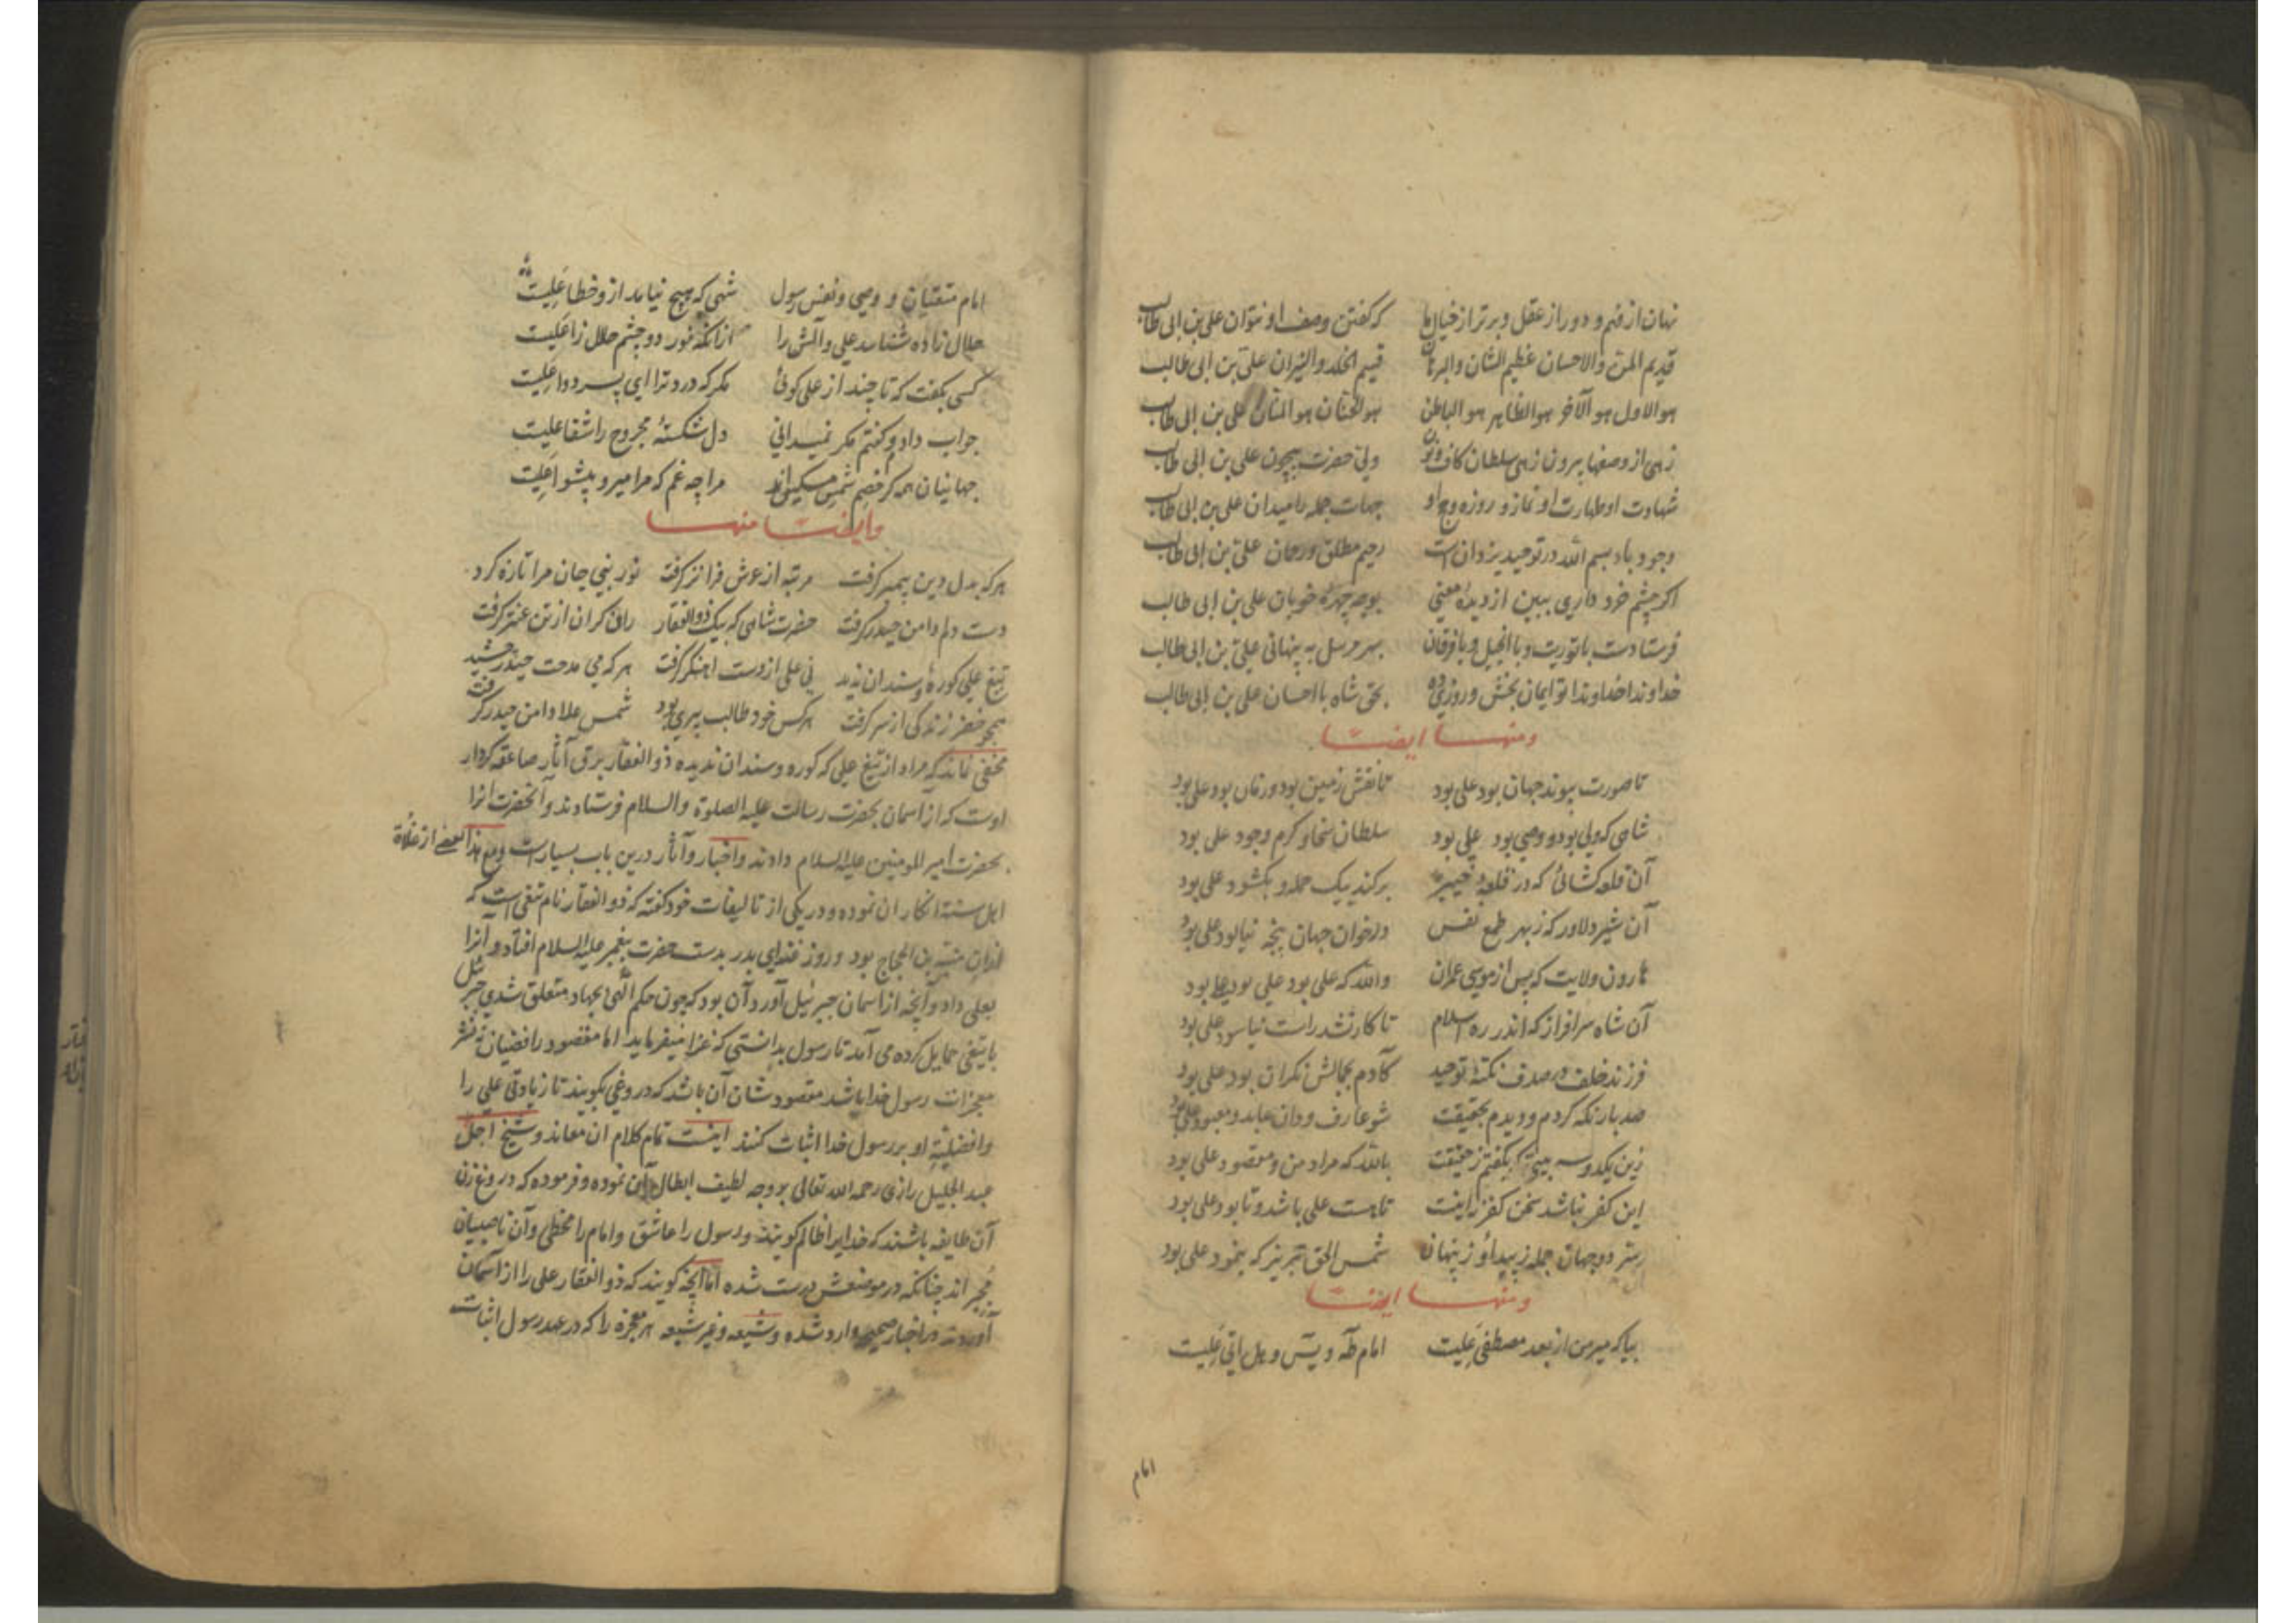 نهان از فهم و دور از عقل و برتر از خیال ما که گفتن وصف او نتوان علی بن ابی طالب
قدیم المن والاحسان عظیم الشان والبرهان قسیم الخلد والنیران علی بن ابی طالب
هو الاول هو الآخر هو الظاهر هو الباطن هو الحنان هو المنان علی بن ابی طالب
زهی از وصفها بیرون زهی سلطان کاف و نون ولی حضرت بیچون علی بن ابی طالب
شهادت او طهارت او نماز و روزه و حج او جهات جمله را میدان علی بن ابی طالب
وجود باء بسم الله در توحید یزدان است رحیم مطلق و رحمان علی بن ابی طالب
اکر چشم خرد داری ببین از دیدهٔ معنی بوجه چهرهٔ خوبان علی بن ابی طالب
فرستادت با توریت و با انجیل و با فرقان بهر مرسل به پنهانی علی بن ابی طالب
خداوندا خداوندا تو ایمان بخش و روزی ده بحق شاه با احسان علی بن ابی طالب
ومنها ایضا
تا صورت پیوند جهان بود علی بود تا نقش زمین بود و زمان بود علی بود
شاهی که ولی بود و وصی بود علی بود سلطان سخا و کرم وجود علی بود
آن قلعه کشائی که در قلعهٔ خیبر برکند بیک حمله و بکشود علی بود
آن شیر دلاور که ز بهر طمع نفس در خوان جهان پنجه نیالود علی بود
هارون ولایت که پس از موسی عمران والله که علی بود علی بود علی بود
آن شاه سرافراز که اندر ره اسلام تا کار نشد راست نیاسود علی بود
فرزند خلف در صدف نکتهٔ توحید کآدم بجمالش نکران بود علی بود
صد بار نکه کردم و دیدم بحقیقت شو عارف و دان عابد و معبود علی بود
زین یکدو سه بیتی که بکفتم ز حقیقت بالله که مراد من و مقصود علی بود
این کفر نباشد سخن کفر نه اینست تا هست علی باشد و تا بود علی بود
سر دو جهان جمله ز پیدا و ز پنهان شمس الحق تبریز که بنمود علی بود
ومنها ایضا
بیا که میر من از بعد مصطفی علیست امام طه و یس و هل اتی علیست
امام
امام متقیان و وصی و نفس رسول شهی که هیچ نیاید ازو خطا علیست
حلال زاده شناسد علی و آلش را ازانکه نور دو چشم حلال زا علیست
کسی بکفت که تا چند از علی کوئی مکر که درد ترا ای پسر دوا علیست
جواب دادم و کفتم مکر نمیدانی دل شکستهٔ مجروح را شفا علیست
جهانیان همه کر خصم شمس مسکین اند مرا چه غم که مرا میر و پیشوا علیست
وایضا منها
هر که بدل دین پیمبر کرفت مرتبه از عرش فراتر کرفت نور نبی جان مرا تازه کرد
دست دلم دامن حیدر کرفت حضرت شاهی که بیک ذوالفقار ران کران از تن عنتر کرفت
تیغ علی کوره و سندان ندید نی علی از دست آهنکر کرفت هر که می مدحت حیدر چشید
همچو خضر زندکی از سر کرفت هر کس خود طالب پیری بود شمس علا دامن حیدر کرفت
مخفی نماند که مراد از تیغ علی که کوره و سندان ندیده ذوالفقار برق آثار صاعقه کردار
اوست که از اسمان بحضرت رسالت علیه الصلوة والسلام فرستادند و آنحضرت انرا
بحضرت امیر المومنین علیه السلام دادند واخبار و آثار درین باب بسیار است ومع هذا بعضی از غلاة
اهل سنة انکار ان نموده و در یکی از تالیفات خود کفته که ذوالفقار نام تیغی است که
ازان منبه بن الحجاج بود و روز غزای بدر بدست حضرت پیغمبر علیه السلام افتاد و آنرا
بعلی داد و آنچه از اسمان جبرئیل آورد آن بود که چون حکم الهی بجهاد متعلق شدی جبرئیل
با تیغی حمایل کرده می آمد تا رسول بدانستی که غزا میفرماید اما مقصود رافضیان نه نشر
معجزات رسول خدا باشد مقصود شان آن باشد که دروغی بکویند تا زیادتی علی را
وافضلیت او بر رسول خدا اثبات کنند اینست تمام کلام ان معاند و شیخ اجل
عبد الجلیل رازی رحمه الله تعالی بر وجه لطیف ابطال آن نموده و فرموده که دروغ زن
آن طایفه باشند که خدا را ظالم کویند و رسول را عاشق و امام را مخطی و آن ناصبیان
مجبر اند چنانکه در موضعش درست شده اما آنچه کویند که ذوالفقار علی را از آسمان
آوردند در اخبار صحیح وارد شده و شیعه و غیر شیعه هر معجزه را که در عهد رسول اثبات